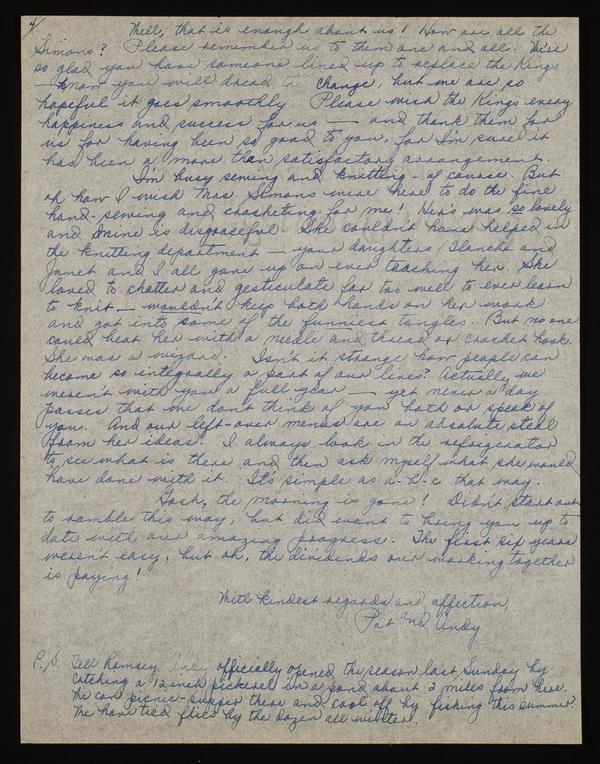 4/
Well, that is enough about us! How are all the
Simons? Please remember us to them one and all. We're
so glad you have someone lined up to replace the Kings
— know you will dread the change, but we are so
hopeful it goes smoothly. Please wish the Kings every
happiness and success for us — and thank them for
us for having been so good to you, for I'm sure it
has been a more than satisfactory arrangement.
I'm busy sewing and knitting - of course. But
oh how I wish Mrs. Simons were here to do the fine
hand-sewing and crocheting for me! Her's was so lovely
and mine is disgraceful. She couldn't have helped in
the knitting department — your daughters Blanche and
Janet and I all gave up on ever teaching her. She
loved to chatter and gesticulate far too well to ever learn
to knit — wouldn't keep both hands on her work
and got into some of the funniest tangles. But no one
could beat her with a needle and thread or crochet hook.
She was a wizard. Isn't it strange how people can
become so integrally a part of our lives? Actually we
weren't with you a full year — yet never a day
passes that we don't think of you both or speak of
you. And our left-over menus are an absolute steal
from her ideas. I always look in the refrigerator
to see what is there and then ask myself what she would
have done with it. It's simple as a-b-c that way.
Gosh, the morning is gone! Didn't start out
to ramble this way, but did want to bring you up to
date with our amazing progress. The first six years
weren't easy, but oh, the dividends our working together
is paying!
With kindest regards and affection,
Pat and Andy
P.S. Tell Ramsey Andy officially opened the season last Sunday by
catching a 12 inch pickerel in a pond about 2 miles from here.
We can picnic-supper there and cool off by fishing this summer.
We have tied flies by the dozen all winter.